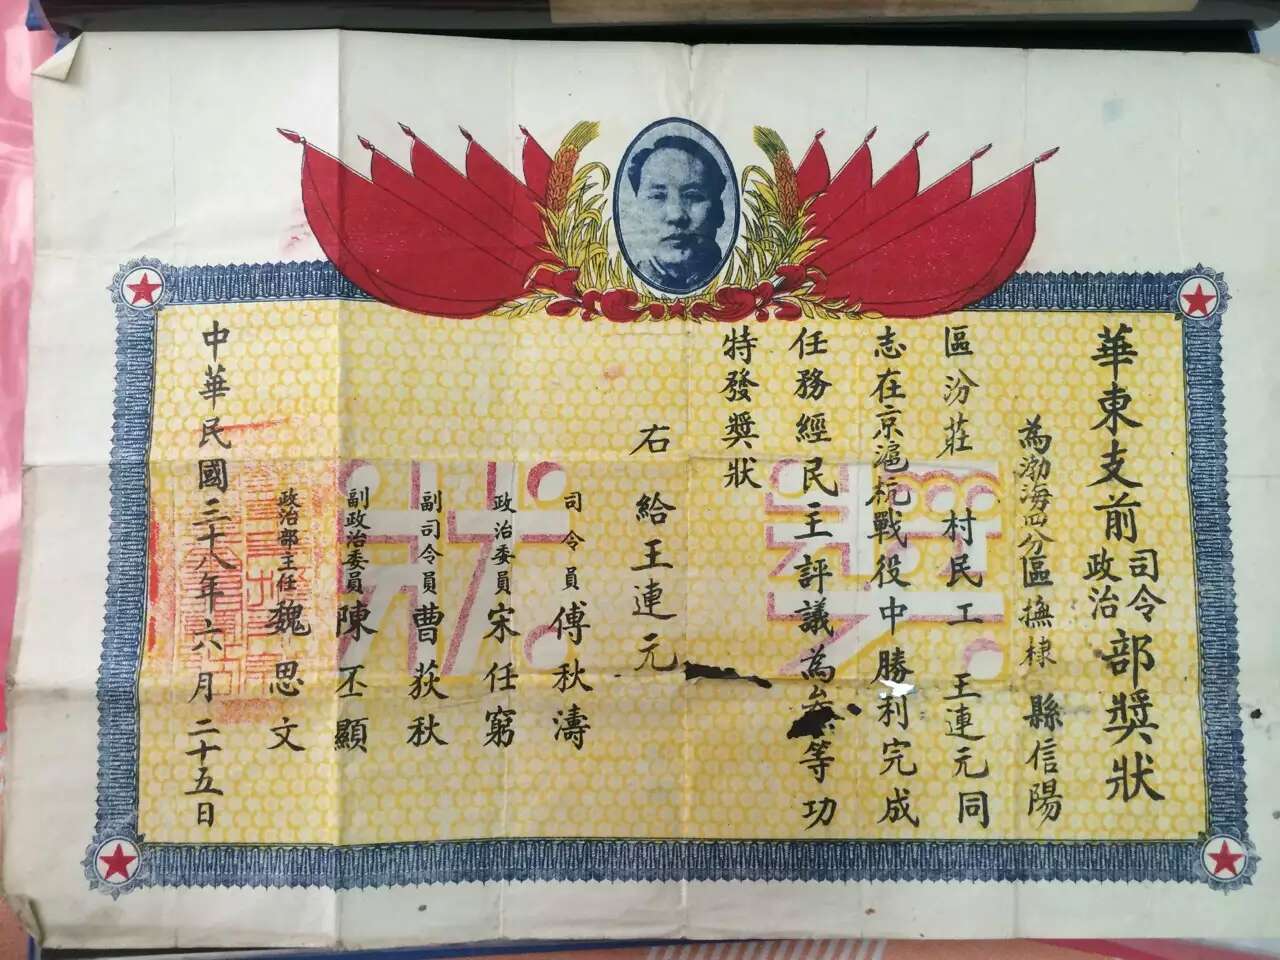 華東支前司令政治部獎狀
為渤海四分區撫棣縣信陽
區汾莊村民工王連元同
志在京滬杭戰役中勝利完成
任務經民主評議為叁等功
特發獎狀
右給王連元
司令員傅秋濤
政治委員宋任窮
副司令員曹荻秋
副政治委員陳丕顯
政治部主任魏思文
中華民國三十八年六月二十五日